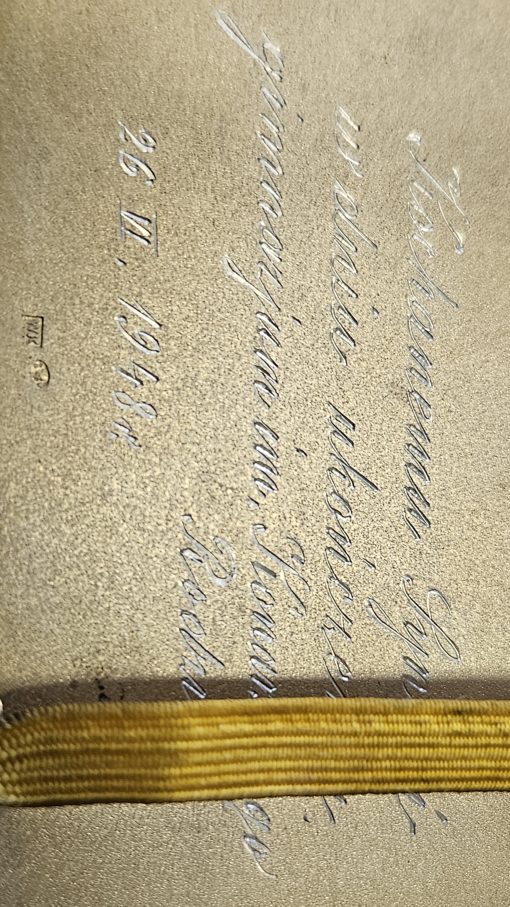 Kochanemu Syn i
w dniu ukończe
gimnazjum im. Konar go
Rodz
26 VI. 1948 r